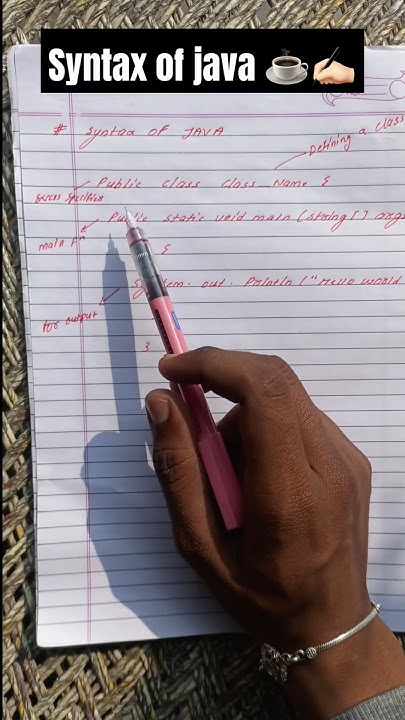 Syntax of java ☕✍🏻
# Syntax OF JAVA
Defining a class
Public class class_Name {
access specifier
Public static void main (string [] args
main fn
{
System. out. Println ("Hello world
for output
}